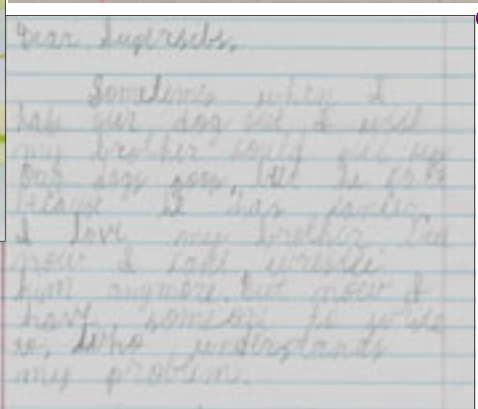 Dear Supersibs,
Sometimes when I
take our dog out I wish
my brother could pick up
our dogs poop, but he can't
because he has cancer.
I love my brother but
now I cant wrestle
him anymore. But now I
have someone to write
to, who understands
my problem.